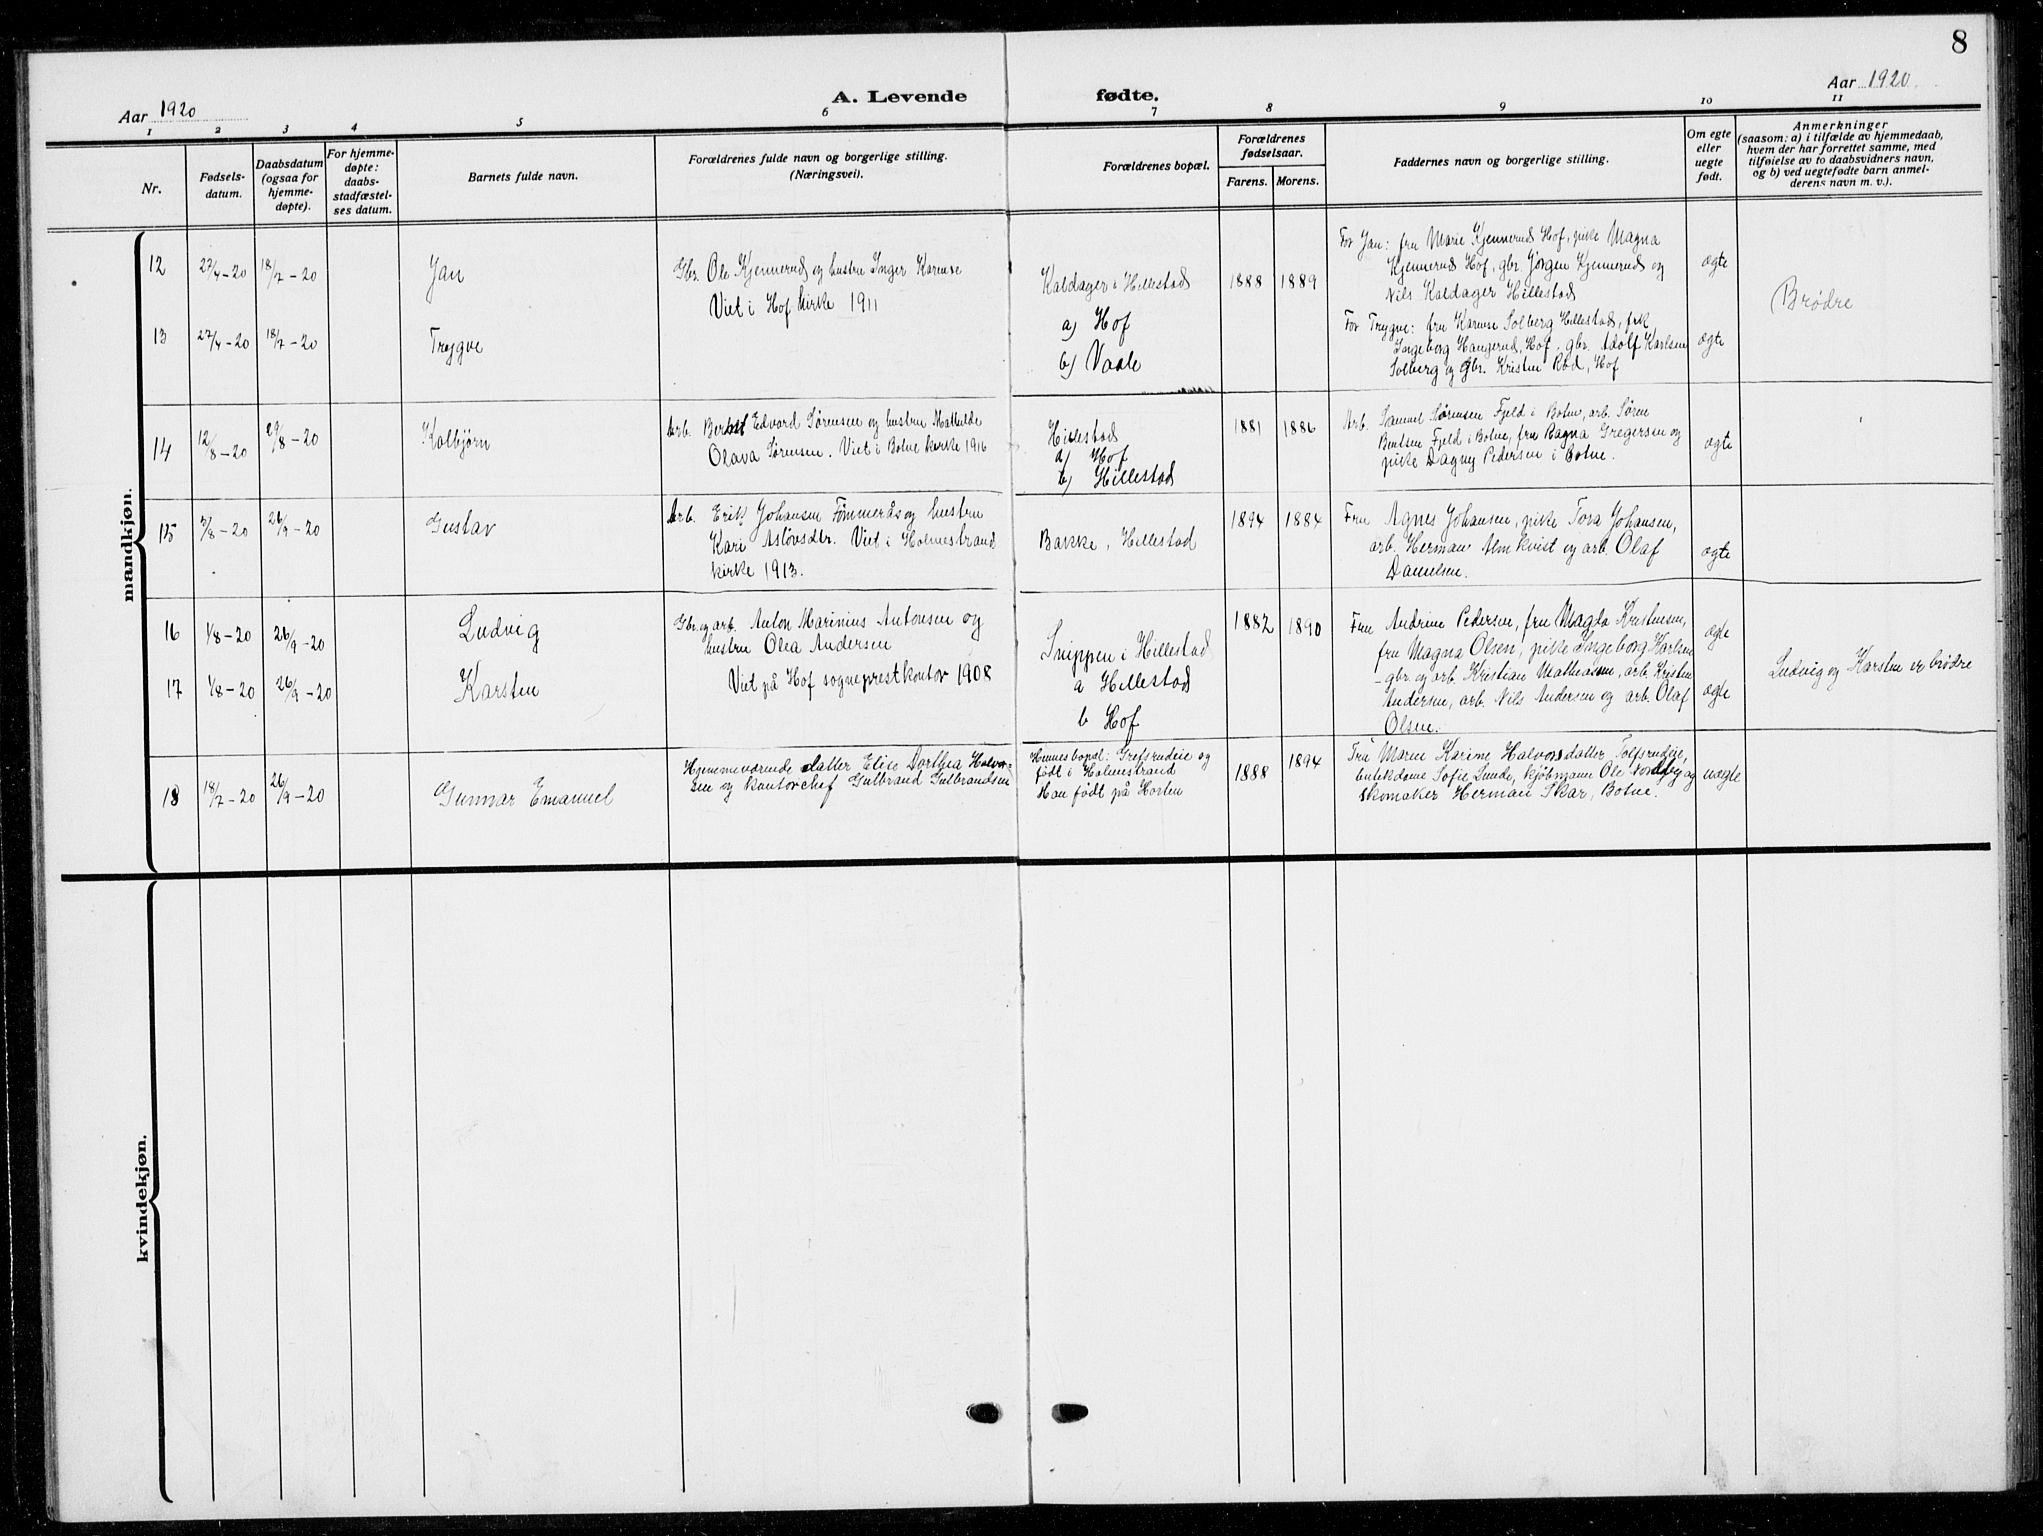 8
Aar 1920
A. Levende fødte.
Aar 1920
1 2 3 4 5 6 7 8 9 10 11
Nr.
Fødsels-
datum.
Daabsdatum
(ogsaa for
hjemme-
døpte).
For hjemme-
døpte:
daabs-
stadfæstel-
ses datum.
Barnets fulde navn.
Forældrenes fulde navn og borgerlige stilling.
(Næringsvei).
Forældrenes bopæl.
Forældrenes
fødselsaar.
Farens. Morens.
Faddernes navn og borgerlige stilling.
Om egte
eller
uegte
født.
Anmerkninger
(saasom: a) i tilfælde av hjemmedaab,
hvem der har forrettet samme, med
tilføielse av to daabsvidners navn,
og b) ved uegtefødte barn anmel-
derens navn m. v.).
mandkjøn.
12
27/4-20
18/7-20
Jan
Gbr. Ole Kjennerud og hustru Inger Karense
Viet i Hof kirke 1911
Kaldager i Hillestad
a) Hof
b) Vaale
1888 1889
For Jan: fru Marie Kjennerud Hof, pike Magna
Kjennerud Hof, gbr. Jørgen Kjennerud og
Nils Kaldager Hillestad
ægte
Brødre
13
27/4-20
18/7-20
Trygve
For Trygve: fru Karense Solberg Hillestad, frk
Ingeborg Haugerud, Hof, gbr. Adolf Karlsen
Solberg og gbr. Kristen Rød, Hof
ægte
14
12/8-20
29/8-20
Kolbjørn
Arb. Edvard Sørensen og hustru Mathilde
Olava Sørensen. Viet i Botne kirke 1916
Hillestad
a) Hof
b) Hillestad
1881 1886
Arb. Samuel Sørensen Fjeld i Botne, arb. Søren
Bentsen Fjeld i Botne, fru Ragna Gregersen og
pike Dagny Pedersen i Botne.
ægte
15
3/8-20
26/9-20
Gustav
Arb. Erik Johansen Tømmerås og hustru
Kari Aslovsdtr. Viet i Holmestrand
kirke 1913.
Bakke, Hillestad
1894 1884
Fru Agnes Johansen, pike Tora Johansen,
arb. Herman Almkvist og arb. Olaf
Danielsen.
ægte
16
1/8-20
26/9-20
Ludvig
Gbr. og arb. Anton Marinius Antonsen og
hustru Olea Andersen
Viet på Hof sogneprestkontor 1908
Snippen i Hillestad
a Hillestad
b Hof
1882 1890
Fru Andrine Pedersen, fru Magda Kristensen,
fru Magna Olsen, pike Ingeborg Karlsen
gbr. og arb. Kristian Mathiasen, arb. Kristen
Andersen, arb. Nils Andersen og arb. Olaf
Olsen.
ægte
17
1/8-20
26/9-20
Karsten
ægte
Ludvig og Karsten er brødre
18
14/7-20
26/9-20
Gunnar Emanuel
Hjemmeværende datter Elise Dorthea Halvor-
sen og kontorchef Gulbrand Gulbrandsen
Hennes bopæl: Grefsrudeie og
født i Holmestrand
Han født på Horten
1888 1894
Fru Maren Karine Halvorsdatter Tolfsrudeie,
butikdame Sofie Lunde, kjøbmann Ole Nordby og
skomaker Herman Skar, Botne.
uægte
kvindekjøn.